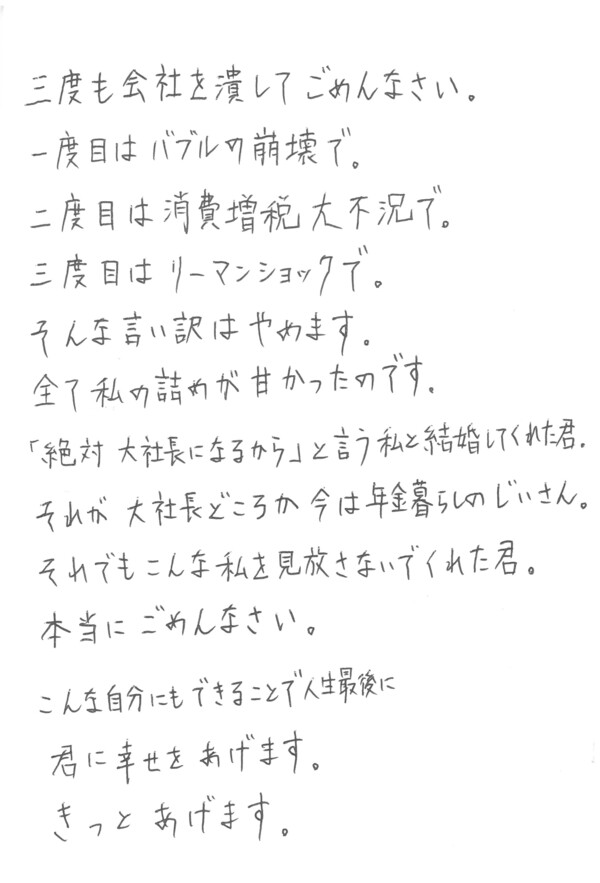 三度も会社を潰してごめんなさい。
一度目はバブルの崩壊で。
二度目は消費増税大不況で。
三度目はリーマンショックで。
そんな言い訳はやめます。
全て私の詰めが甘かったのです。
「絶対 大社長になるから」と言う私と結婚してくれた君。
それが 大社長どころか 今は年金暮らしのじいさん。
それでもこんな私を見放さないでくれた君。
本当にごめんなさい。
こんな自分にもできることで人生最後に
君に幸せをあげます。
きっとあげます。